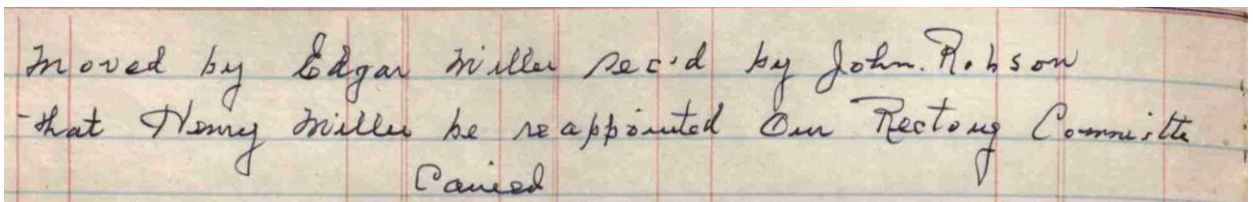 Moved by Edgar Miller sec'd by John. Robson
that Henry Miller be reappointed Our Rectory Committe
Carried